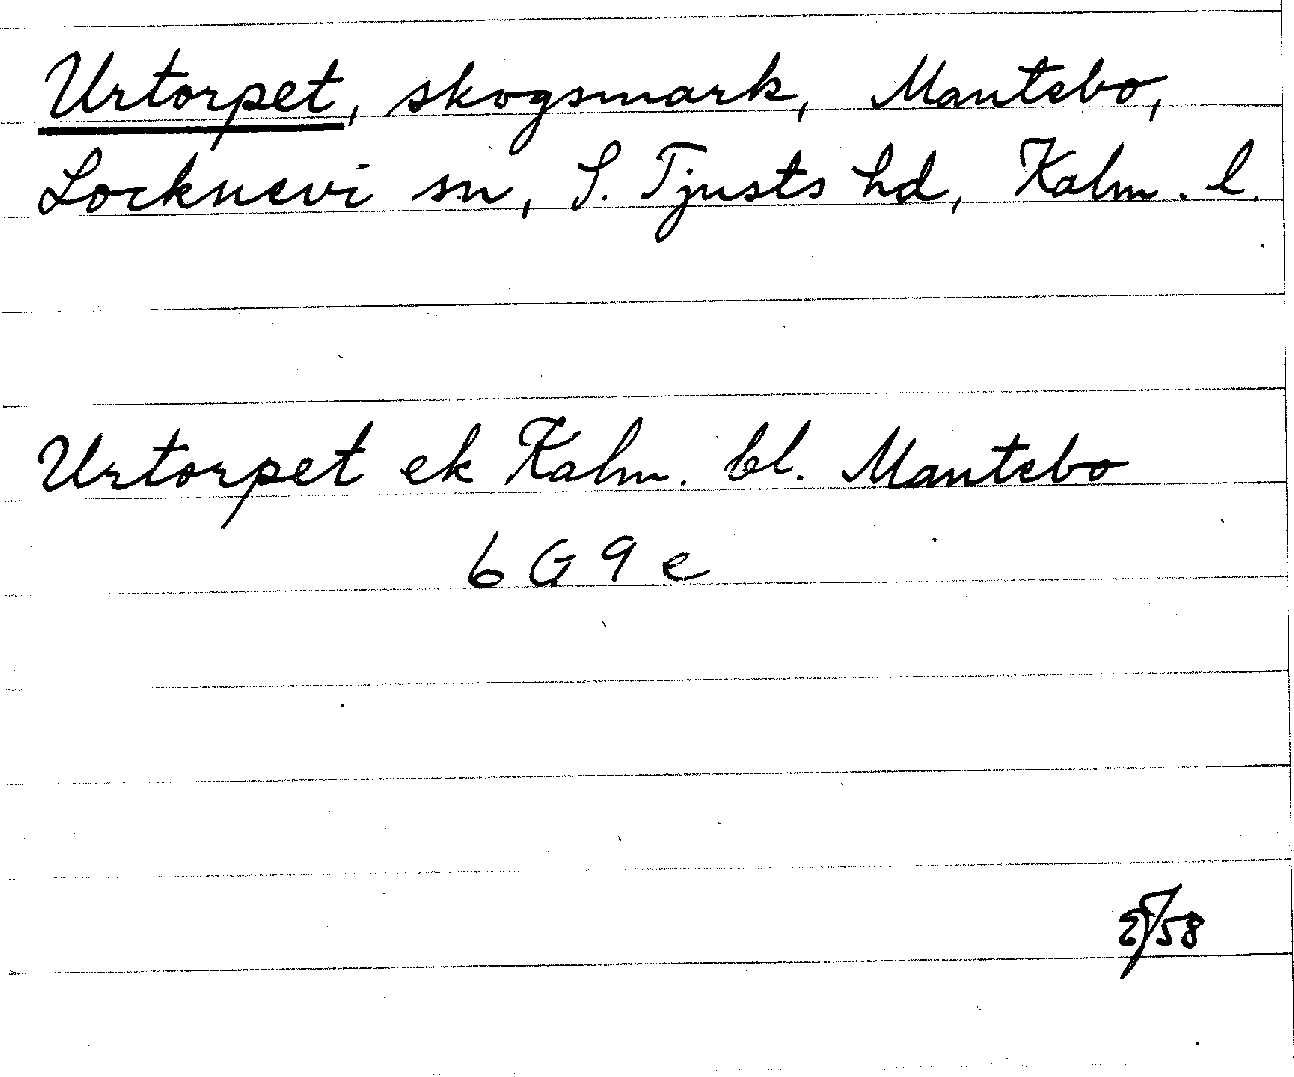 Urtorpet, skogsmark, Mantebo,
Locknevi sn, S. Tjusts hd, Kalm. l.
Urtorpet ek Kalm. bl. Mantebo
6 G 9 e